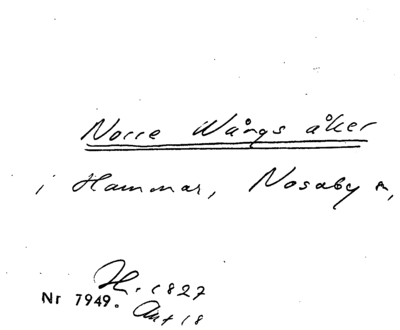 Norre Wångs åker
i Hammar, Nosaby
H. 1827
Nr 7949.
Akt 18